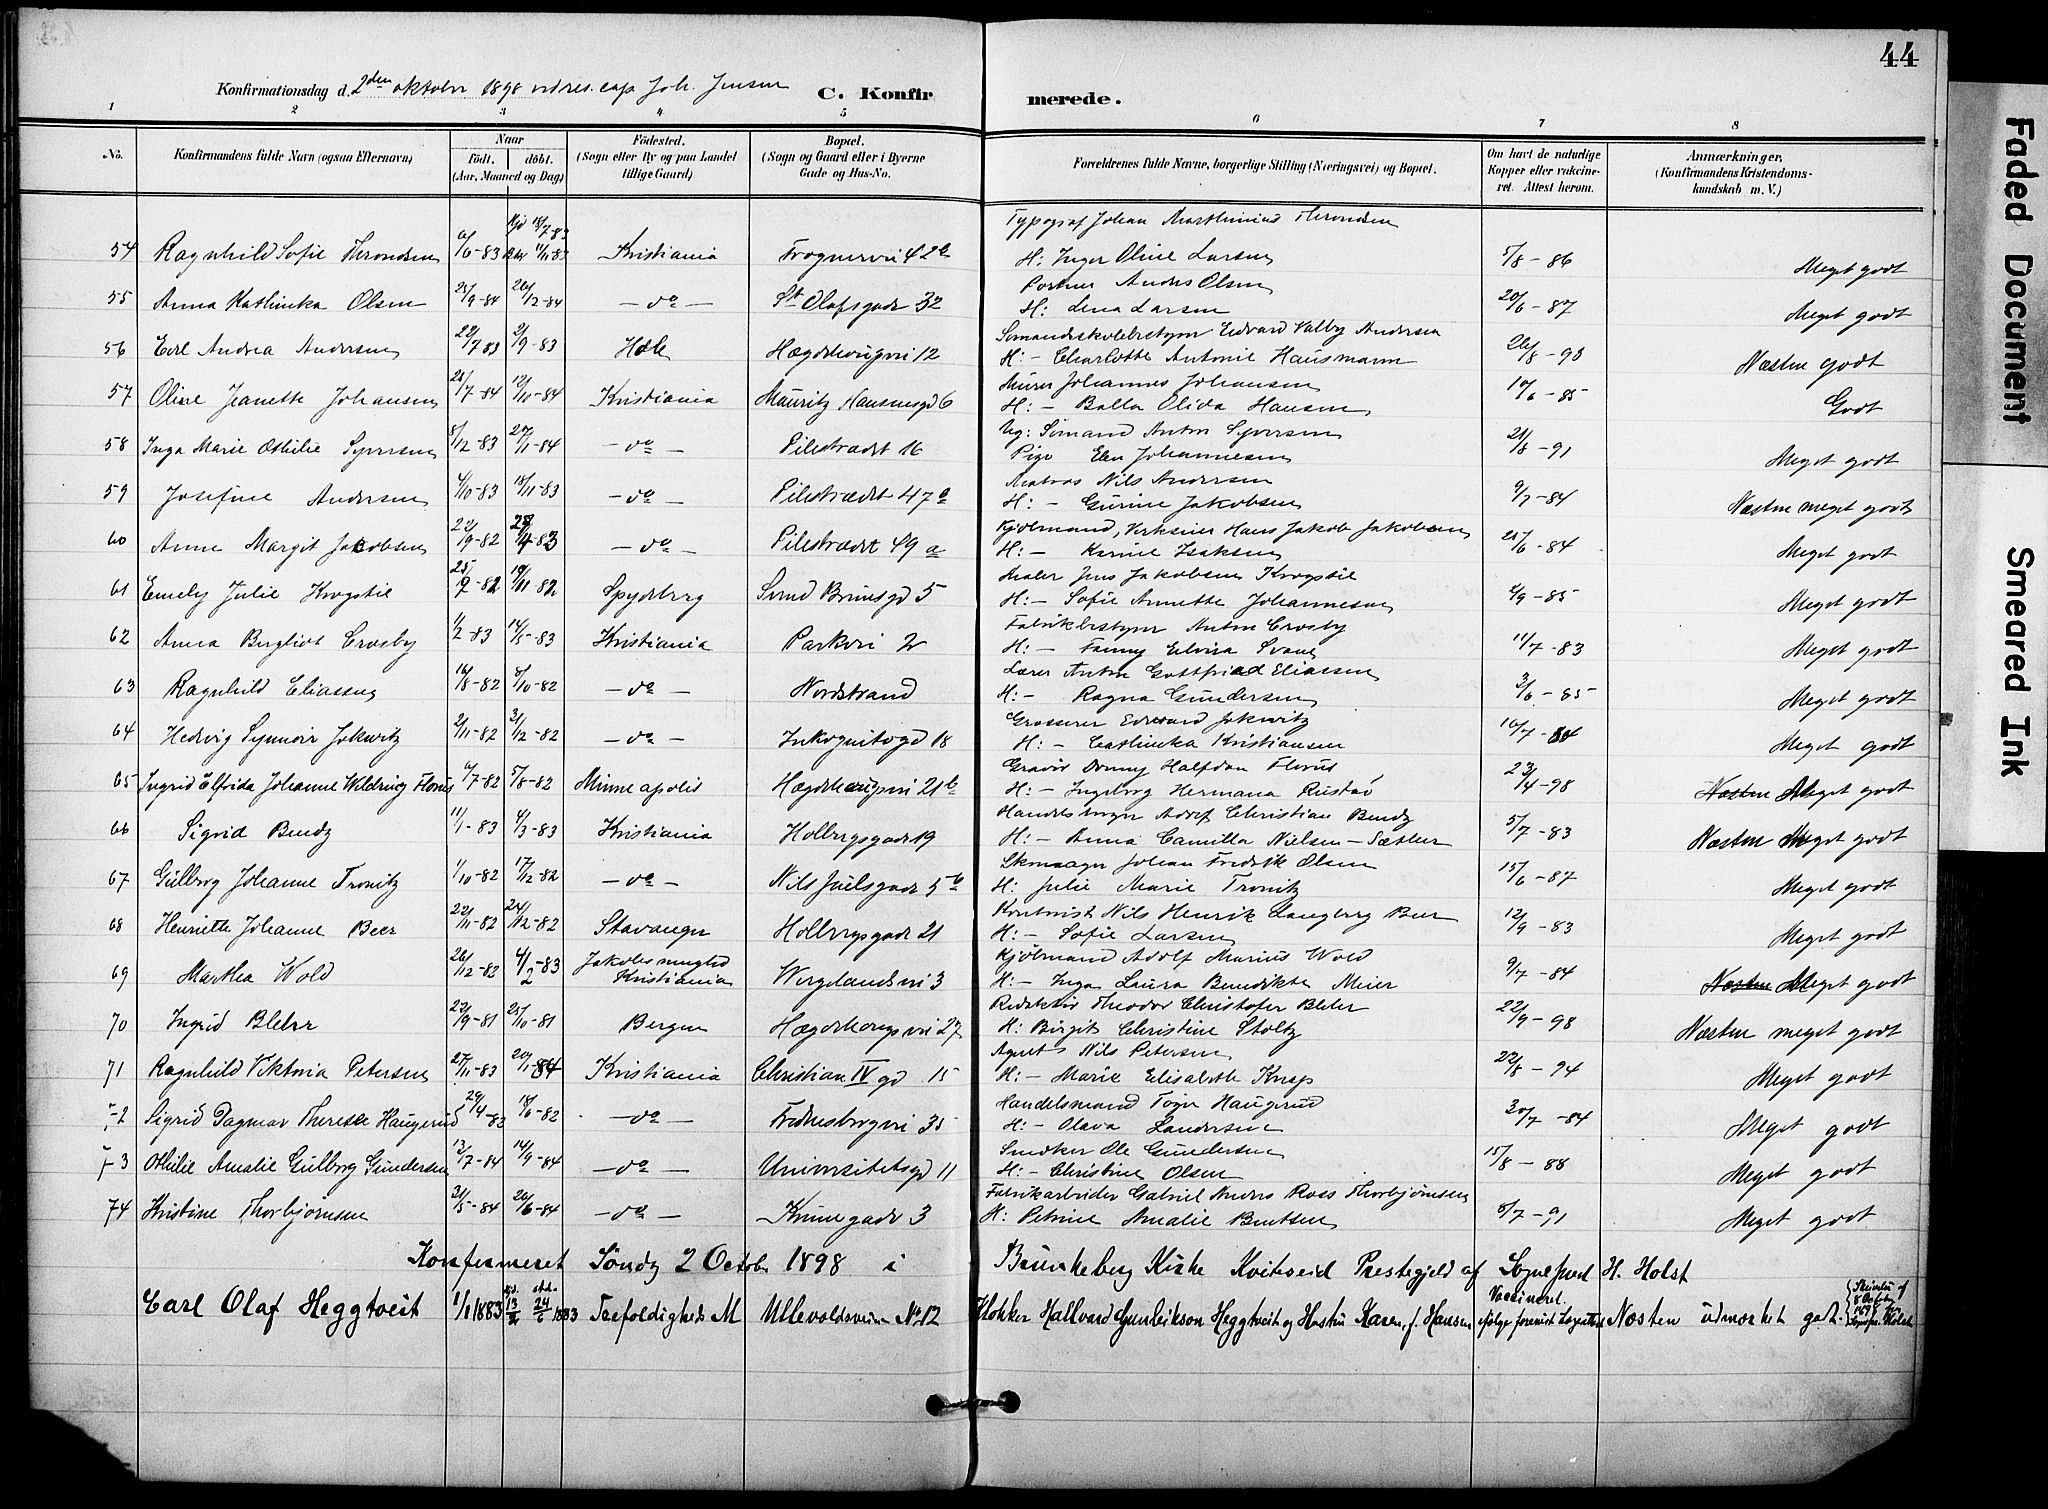 44
Konfirmationsdag d. 2den oktober 1898 ved res. cap. Joh. Jensen C. Konfir merede.
1 2 3 4 5 6 7 8
No. Konfirmandens fulde Navn (ogsaa Efternavn) Naar födt. döbt. (Aar, Maaned og Dag) Födested. (Sogn eller By og paa Landet tillige Gaard) Bopæl. (Sogn og Gaard eller i Byerne Gade og Hus-No. Forældrenes fulde Navne, borgerlige Stilling (Næringsvei) og Bopæl. Om havt de naturlige Kopper eller vaccineret. Attest herom. Anmærkninger, (Konfirmandens Kristendomskundskab m. V.)
Typograf Johan Marthinius Throndsen
54 Ragnhild Sofie Throndsen 6/6-83 Kristiania Frognervei 42b H: Inger Oline Larsen 5/8-86 Meget godt
Portner Anders Olsen
55 Anna Kathinka Olsen 25/9-84 26/12-84 - do - St Olafsgade 32 H: Lena Larsen 20/6-87 Meget godt
Edvard Valby Andersen
56 Andrea Andersen 22/7 83 2/9-83 Hægdehaugvei 12 H:- Charlotte Antonie Hausmann 26/8-98 Næsten godt
Murer Johannes Johansen
57 Oline Jeanette Johansen 28/7-84 12/10-84 Kristiania Mauritz Hansensgd 6 H:- Balla Olida Hansen 10/6-85 Godt
Ug: Sömand Anton Syversen
58 Inga Marie Othilie Syversen 8/12-83 27/1-84 - do - Pilestrædet 16 Pige Elen Johannesen 21/8-91 Meget godt
Matros Nils Andersen
59 Josefine Andersen 4/10-83 18/11-83 - do - Pilestrædet 47a H:- Gurine Jakobsen 9/7-84 Næsten meget godt
Kjölmand, Hans Jakob Jakobsen
60 Anna Margit Jakobsen 22/9-82 - do - Pilestrædet 49 a H:- Karine Isaksen 25/6-84 Meget godt
Maler Jens Jakobsen Krogstie
61 Emely Julie Krogstie 25/9-82 19/11-82 Spydeberg Svend Brunsgd 5 H:- Sofie Annette Johannesen 4/9-85 Meget godt
Fabrikbestyrer Anton Crosby
62 Anna Bergliot Crosby 1/2-83 14/5-83 Kristiania Parkvei 2 H:- Fanny Elvira Svane 11/7-83 Meget godt
Lærer Anton Gottfriad Eliassen
63 Ragnhild Eliassen 16/8-82 8/10-82 - do - Nordstrand H:- Ragna Gundersen 3/6-85 Meget godt
Grosserer Edvard Jakwitz
64 Hedvig Synnöve Jakwitz 2/11-82 31/12-82 - do - Inkognitogd 18 H:- Cathinka Kristiansen 10/7-84 Meget godt
Gravör Halfdan
65 Ingrid Elfrida Johanne 6/7-82 5/8-82 Minneapolis Hægdehaugsvei 21b H:- Ingeborg Hermana Rustad 23/4-98 Næsten Meget godt
Adolf Christian Bendz
66 Sigrid Bendz 11/1-83 4/3-83 Kristiania Holbergsgade 19 H:- Anna Camilla Nielsen-Sæther 5/7-83 Næsten Meget godt
Skomager Johan Fredrik Olsen
67 Gulborg Johanne Tronitz 1/10-82 17/12-82 - do - Nils Juelsgade 5b H: Julie Marie Tronitz 15/6-87 Meget godt
Kontorist Nils Henrik Langberg Beer
68 Henriette Johanne Beer 22/11-82 24/12-82 Stavanger Holbergsgade 21 H:- Sofie Larsen 12/9-83 Meget godt
Kjölmand Adolf Marius Wold
69 Martha Wold 26/12-82 4/2-83 Jakobs menighed Kristiania Wergelandsvei 3 H:- Inga Laura Benedikte Meier 9/7-84 Næsten Meget godt
Redaktör Theodor Christofer Blehr
70 Ingrid Blehr 23/9-81 25/10-81 Bergen Hægdehaugsvei 27 H: Birgit Christine Stoltz 22/9-98 Næsten meget godt
Agent Nils Petersen
71 Ragnhild Viktoria Petersen 27/11-83 20/1-84 Kristiania Christian IV gd 15 H:- Marie Elisabeth Knap 22/8-94 Meget godt
Handelsmand Haugerud
72 Sigrid Dagmar Therese Haugerud 29/4-82 18/6-82 - do - Fredensborgvei 35 H:- Olava Landersen 30/7-84 Meget godt
Snedker Ole Gundersen
73 Othilie Amalie Gulborg Gundersen 13/7-84 14/9-84 - do - Universitetsgd 11 H:- Christine Olsen 15/8-88 Meget godt
Fabrikarbeider Gabriel Anders Roes Thorbjörnsen
74 Kristine Thorbjörnsen 31/5-84 20/6-84 - do - Krunegade 3 H: Petrine Amalie Bentsen 6/7-91 Meget godt
Konfirmeret Söndg 2 Octobr 1898 i Brunkeberg Kirke Kviteseid Prestegjeld af Sogneprest H. Holst
Carl Olaf Heggtveit 1/1 1883 13/2 24/6 1883 Trefoldigheds M Ullevoldsveien No 12 Klokker Hallvard Gunleikson Heggtveit og Hustru Karen, f. Hansen Vaccineret. ifölge Næsten udmærket godt.
Faded Document
Smeared Ink